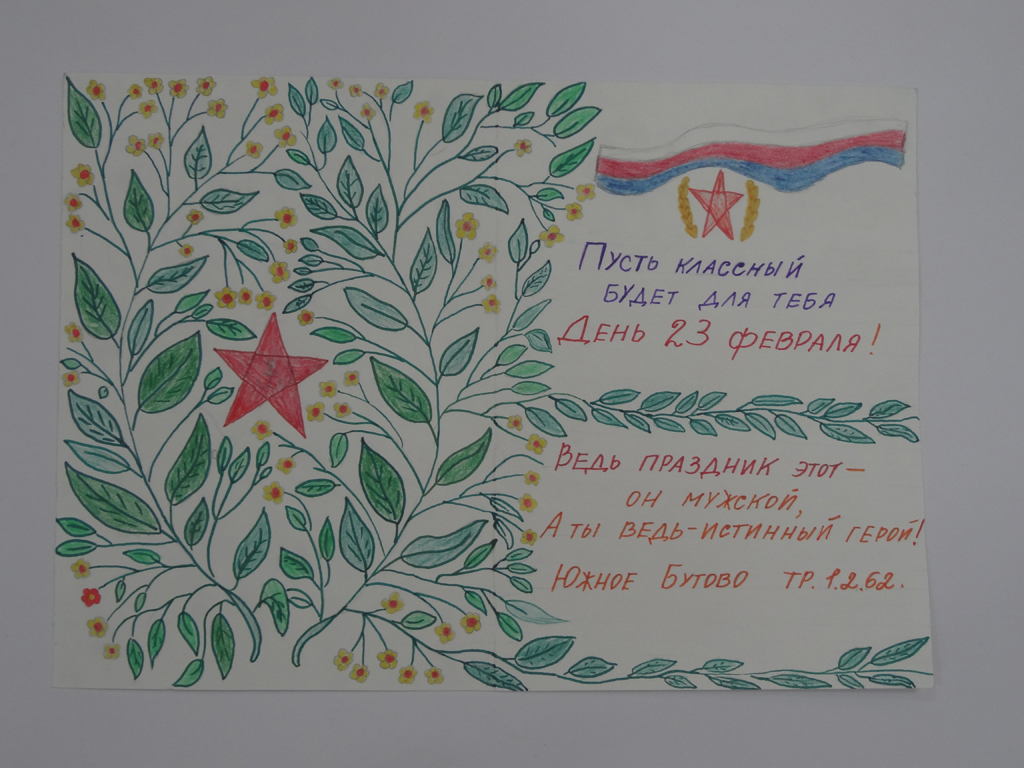 Пусть классный
будет для тебя
День 23 февраля!
Ведь праздник этот –
он мужской,
А ты ведь - истинный герой!
Южное Бутово тр. 1.2.62.